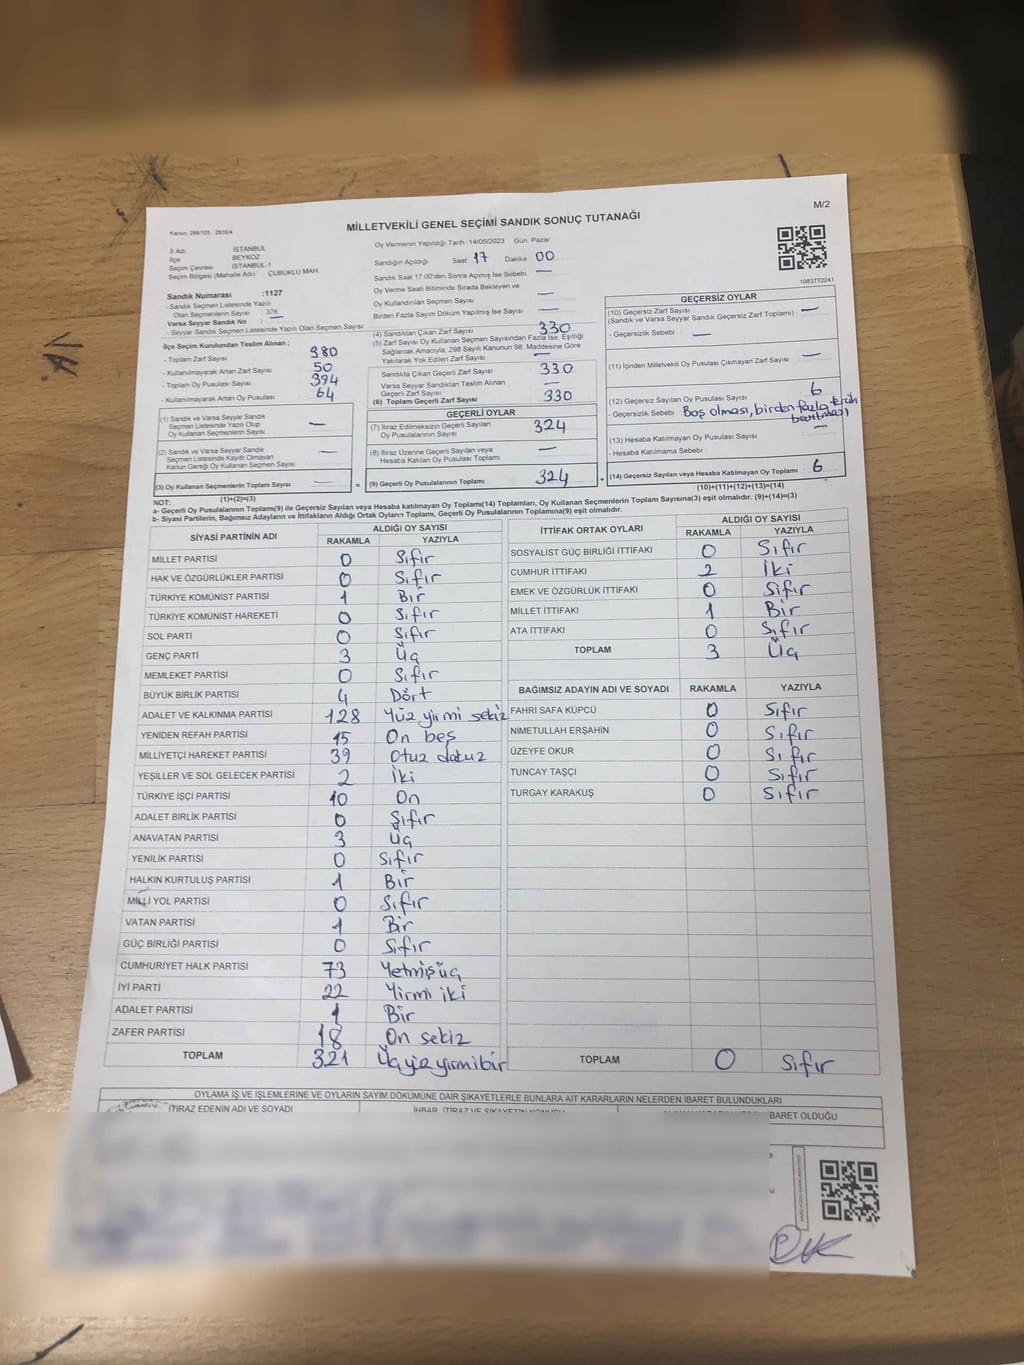 M/2
MİLLETVEKİLİ GENEL SEÇİMİ SANDIK SONUÇ TUTANAĞI
İl Adı : İSTANBUL
İlçe : BEYKOZ
Seçim Çevresi : İSTANBUL-1
Seçim Bölgesi (Mahalle Adı) : ÇUBUKLU MAH.
Oy Vermenin Yapıldığı Tarih 14/05/2023 Gün Pazar
Sandığın Açıldığı Saat 17 Dakika 00
Sandık Saat 17.00'den Sonra Açılmış İse Sebebi —
Oy Verme Saati Bitiminde Sırada Bekleyen ve
Oy Kullandırılan Seçmen Sayısı —
Birden Fazla Sayım Döküm Yapılmış İse Sayısı —
1083772241
Sandık Numarası :1127
- Sandık Seçmen Listesinde Yazılı
Olan Seçmenlerin Sayısı : 376
Varsa Seyyar Sandık No : —
- Seyyar Sandık Seçmen Listesinde Yazılı Olan Seçmen Sayısı:
İlçe Seçim Kurulundan Teslim Alınan ;
- Toplam Zarf Sayısı 380
- Kullanılmayarak Artan Zarf Sayısı 50
- Toplam Oy Pusulası Sayısı 394
- Kullanılmayarak Artan Oy Pusulası 64
(1) Sandık ve Varsa Seyyar Sandık
Seçmen Listesinde Yazılı Olup
Oy Kullanan Seçmenlerin Sayısı —
(2) Sandık ve Varsa Seyyar Sandık
Seçmen Listesinde Kayıtlı Olmayan
Kanun Gereği Oy Kullanan Seçmen Sayısı —
(3) Oy Kullanan Seçmenlerin Toplam Sayısı —
(1)+(2)=(3)
(4) Sandıktan Çıkan Zarf Sayısı 330
(5) Zarf Sayısı Oy Kullanan Seçmen Sayısından Fazla İse, Eşitliği
Sağlamak Amacıyla, 298 Sayılı Kanunun 98. Maddesine Göre
Yakılarak Yok Edilen Zarf Sayısı —
Sandıkta Çıkan Geçerli Zarf Sayısı 330
Varsa Seyyar Sandıktan Teslim Alınan
Geçerli Zarf Sayısı —
(6) Toplam Geçerli Zarf Sayısı 330
GEÇERLİ OYLAR
(7) İtiraz Edilmeksizin Geçerli Sayılan
Oy Pusulalarının Sayısı 324
(8) İtiraz Üzerine Geçerli Sayılan veya
Hesaba Katılan Oy Pusulası Toplamı —
= (9) Geçerli Oy Pusulalarının Toplamı 324 +
GEÇERSİZ OYLAR
(10) Geçersiz Zarf Sayısı —
(Sandık ve Varsa Seyyar Sandık Geçersiz Zarf Toplamı) :
- Geçersizlik Sebebi : —
(11) İçinden Milletvekili Oy Pusulası Çıkmayan Zarf Sayısı —
(12) Geçersiz Sayılan Oy Pusulası Sayısı 6
- Geçersizlik Sebebi Boş olması, birden fazla tercih
(13) Hesaba Katılmayan Oy Pusulası Sayısı —
- Hesaba Katılmama Sebebi :
(14) Geçersiz Sayılan veya Hesaba Katılmayan Oy Toplamı 6
(10)+(11)+(12)+(13)=(14)
NOT:
a- Geçerli Oy Pusulaları Toplamı(9) ile Geçersiz Sayılan veya Hesaba Katılmayan Oy Toplamı(14) Toplamları, Oy Kullanan Seçmenlerin Toplam Sayısına(3) eşit olmalıdır. (9)+(14)=(3)
b- Siyasi Partilerin, Bağımsız Adayların ve İttifakların Aldığı Ortak Oyların Toplamı, Geçerli Oy Pusulalarının Toplamına(9) eşit olmalıdır.
SİYASİ PARTİNİN ADI ALDIĞI OY SAYISI
RAKAMLA YAZIYLA
MİLLET PARTİSİ 0 Sıfır
HAK VE ÖZGÜRLÜKLER PARTİSİ 0 Sıfır
TÜRKİYE KOMÜNİST PARTİSİ 1 Bir
TÜRKİYE KOMÜNİST HAREKETİ 0 Sıfır
SOL PARTİ 0 Sıfır
GENÇ PARTİ 3 Üç
MEMLEKET PARTİSİ 0 Sıfır
BÜYÜK BİRLİK PARTİSİ 4 Dört
ADALET VE KALKINMA PARTİSİ 128 Yüz yirmi sekiz
YENİDEN REFAH PARTİSİ 15 On beş
MİLLİYETÇİ HAREKET PARTİSİ 39 Otuz dokuz
YEŞİLLER VE SOL GELECEK PARTİSİ 2 İki
TÜRKİYE İŞÇİ PARTİSİ 10 On
ADALET BİRLİK PARTİSİ 0 Sıfır
ANAVATAN PARTİSİ 3 Üç
YENİLİK PARTİSİ 0 Sıfır
HALKIN KURTULUŞ PARTİSİ 1 Bir
MİLLİ YOL PARTİSİ 0 Sıfır
VATAN PARTİSİ 1 Bir
GÜÇ BİRLİĞİ PARTİSİ 0 Sıfır
CUMHURİYET HALK PARTİSİ 73 Yetmişüç
İYİ PARTİ 22 Yirmi iki
ADALET PARTİSİ 1 Bir
ZAFER PARTİSİ 18 On sekiz
TOPLAM 321 Üçyüzyirmibir
İTTİFAK ORTAK OYLARI ALDIĞI OY SAYISI
RAKAMLA YAZIYLA
SOSYALİST GÜÇ BİRLİĞİ İTTİFAKI 0 Sıfır
CUMHUR İTTİFAKI 2 İki
EMEK VE ÖZGÜRLÜK İTTİFAKI 0 Sıfır
MİLLET İTTİFAKI 1 Bir
ATA İTTİFAKI 0 Sıfır
TOPLAM 3 Üç
BAĞIMSIZ ADAYIN ADI VE SOYADI RAKAMLA YAZIYLA
FAHRİ SAFA KÜPCÜ 0 Sıfır
NİMETULLAH ERŞAHİN 0 Sıfır
ÜZEYFE OKUR 0 Sıfır
TUNCAY TAŞÇI 0 Sıfır
TURGAY KARAKUŞ 0 Sıfır
TOPLAM 0 Sıfır
OYLAMA İŞ VE İŞLEMLERİNE VE OYLARIN SAYIM DÖKÜMÜNE DAİR ŞİKAYETLERLE BUNLARA AİT KARARLARIN NELERDEN İBARET BULUNDUKLARI
İTİRAZ EDENİN ADI VE SOYADI